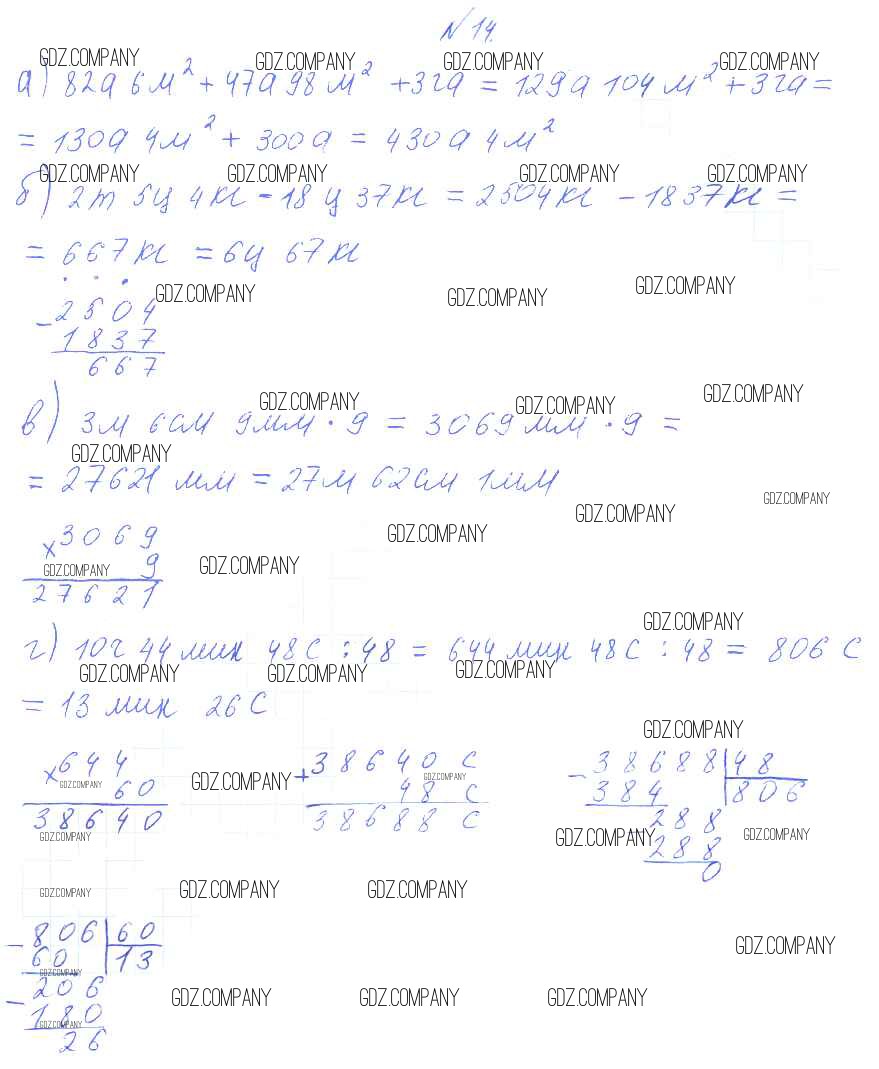 N 14.
GDZ.COMPANY GDZ.COMPANY GDZ.COMPANY GDZ.COMPANY
а) 82а 6м² + 47а 98м² + 3га = 129а 104м² + 3га =
= 130а 4м² + 300а = 430а 4м²
GDZ.COMPANY GDZ.COMPANY GDZ.COMPANY GDZ.COMPANY
б) 2т 5ц 4кг - 18ц 37кг = 2504кг - 1837кг =
= 667кг = 6ц 67кг
GDZ.COMPANY GDZ.COMPANY GDZ.COMPANY
- 2504
1837
667
GDZ.COMPANY GDZ.COMPANY GDZ.COMPANY
в) 3м 6см 9мм · 9 = 3069мм · 9 =
GDZ.COMPANY
= 27621 мм = 27м 62см 1мм
GDZ.COMPANY
GDZ.COMPANY GDZ.COMPANY
× 3069
GDZ.COMPANY 9 GDZ.COMPANY
27621
GDZ.COMPANY
г) 10ч 44мин 48с : 48 = 644мин 48с : 48 = 806 с
GDZ.COMPANY GDZ.COMPANY GDZ.COMPANY
= 13 мин 26с
GDZ.COMPANY
× 644 + 38640 с - 38688 | 48
GDZ.COMPANY 60 GDZ.COMPANY GDZ.COMPANY 48 с 384 806
38640 38688 с 288
GDZ.COMPANY GDZ.COMPANY GDZ.COMPANY
288
0
GDZ.COMPANY GDZ.COMPANY GDZ.COMPANY
- 806 | 60
60 13
GDZ.COMPANY
GDZ.COMPANY
- 206
GDZ.COMPANY GDZ.COMPANY GDZ.COMPANY
180
GDZ.COMPANY
26